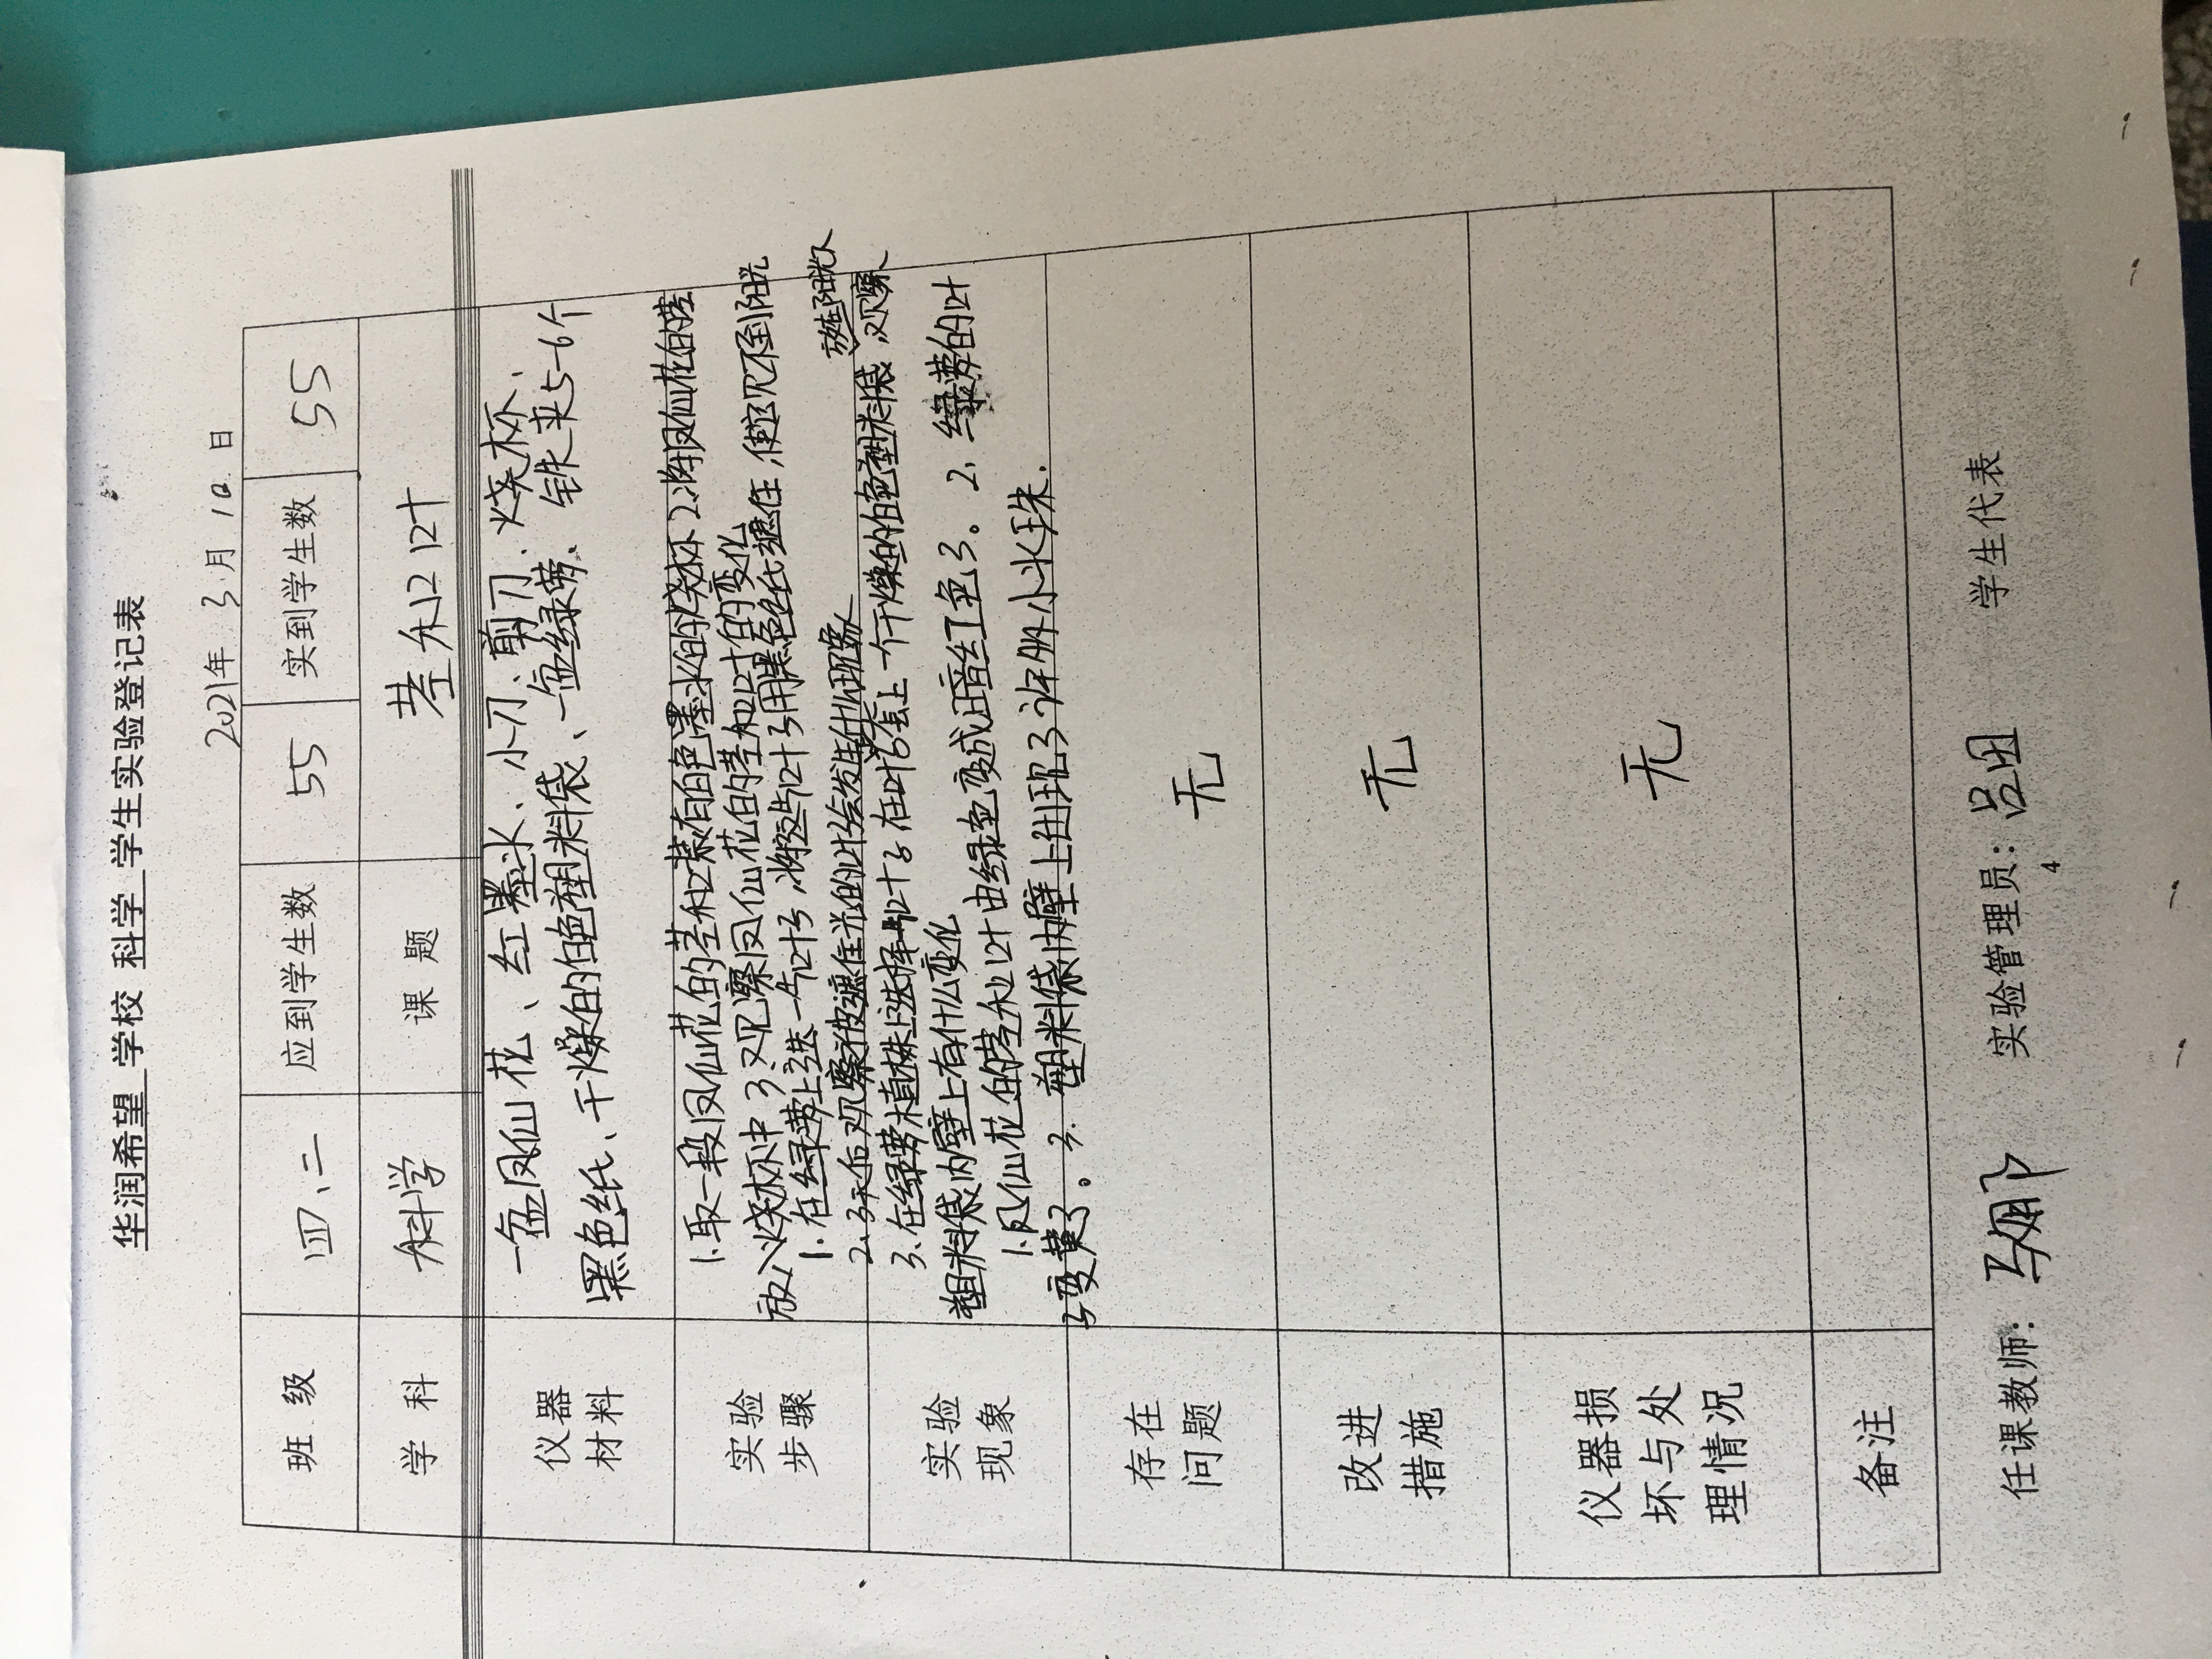 华润希望 学校 科学 学生实验登记表
2021年 3月 10日
班 级 四、二 应到学生数 55 实到学生数 55
学 科 科学 课 题 茎和叶
仪器材料 一盆凤仙花、红墨水、小刀、剪刀、烧杯、
黑色纸、干燥的白色塑料袋、一盆绿萝、铁夹5-6个
实验步骤 1.取一段凤仙花的茎和装有白色墨水的烧杯 2.将凤仙花的茎
放入烧杯中 3.观察凤仙花的茎和叶的变化
1.在绿萝上选一片叶子,将这片叶子用黑色纸遮住,使它见不到阳光
2.3天后观察被遮住光的叶会发生什么现象
3.在绿萝植株上选择一片叶子,在叶子套上一个干燥的白色塑料袋,放在阳光下,观察
塑料袋内壁上有什么变化
实验现象 1.凤仙花的茎和叶由绿色变成暗红色了。2.绿萝的叶
子变黄了。3.塑料袋内壁上出现了许多小水珠.
存在问题 无
改进措施 无
仪器损坏与处理情况 无
备注
任课教师: 实验管理员: 吕团 学生代表
4